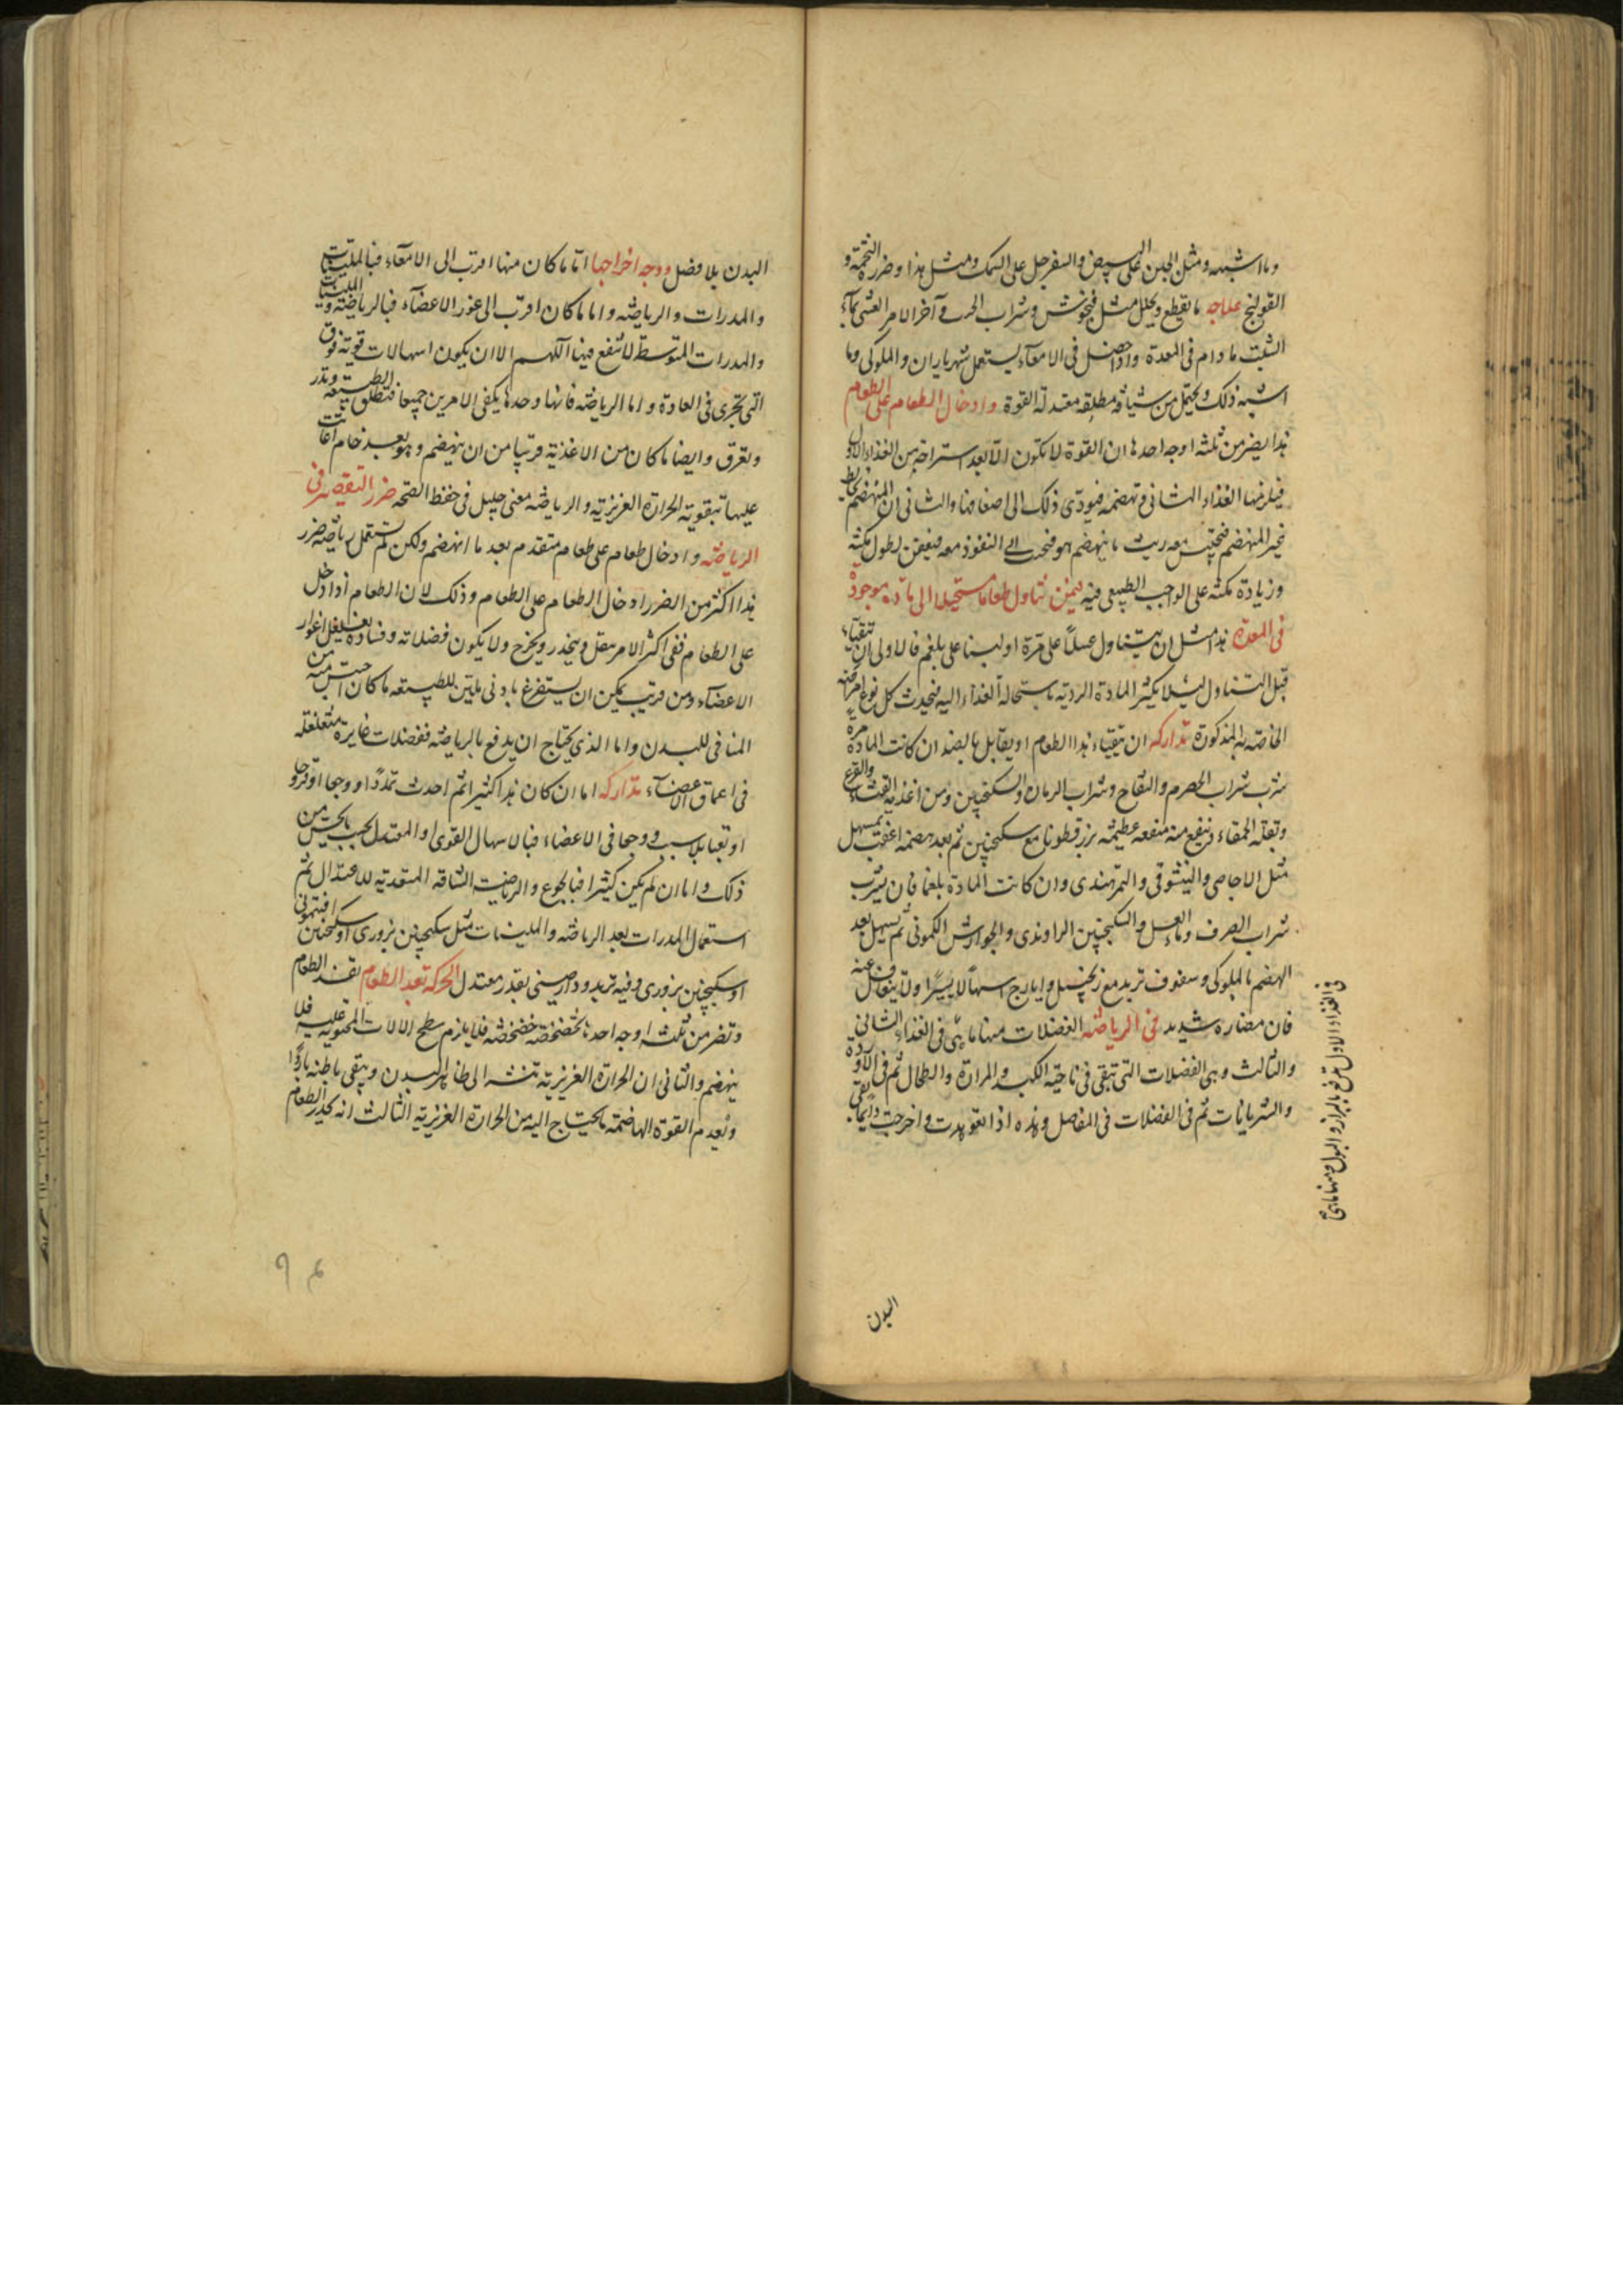 وما اشبهه ومثل الجبن على البيض والسفرجل على السمك ومثل هذا وضرره التخمة و
القولنج علاجه ما يقطع ويحلل مثل فنجنوش وشراب الحب وآخر الامر القى بماء
الشبت ما دام فى المعدة واذا حصل فى الامعاء يستعمل شهرياران والملوكى وما
اشبه ذلك ويحتمل من شيافة مطلقة معتدلة القوة وادخال الطعام على الطعام
هذا يضر من ثلثة اوجه احدها ان القوة لا تكون الا بعد استراحة من الغذاء الاول
فيلزمها الغذاء الثانى وتهضمه فيودى ذلك الى اضعافها والثانى ان المنهضم يخالط
غير المنهضم فيحتبس معه ريث ما ينهضم هو فيحتاج الى النفوذ معه فيعفن لطول مكثه
وزيادة مكثه على الواجب الطبيعى فيه فيمن تناول طعاما مستحيلا الى مادة موجودة
فى المعدة هذا مثل ان يتناول عسلا على مرة او لبنا على بلغم فالاولى ان يتقياء
قبل التناول ليلا يكثر المادة الردية باستحالة الغذاء اليه فيحدث كل نوع امراضه
الخاصة به المذكورة تداركه ان يتقياء هذا الطعام او يقابل بالضد ان كانت المادة مرة
شرب شراب الحصرم والتفاح وشراب الرمان والسكنجبين ومن اغذية القثاء والقرع
وبقلة الحمقاء وينفع منه منفعة عظيمة بزرقطونا مع سكنجبين ثم بعد هضمه اعقب بمسهل
مثل الاجاصى والينشوقى والتمرهندى وان كانت المادة بلغما فان يشرب
شراب الصرف وماء العسل والسكنجبين الراوندى والجوارش الكمونى ثم يسهل بعد
الهضم بالملوكى وسفوف تربد مع زنجبيل وايارج اسهالا يسيرا ولا يتغافل عنه
فان مضاره شديد فى الرياضه الفضلات منها ما يبقى فى الغذاء الثانى
والثالث وهى الفضلات التى تبقى فى ناحية الكبد والمرارة والطحال ثم فى الاوردة
والشريانات ثم فى الفضلات فى المفاصل وهذه اذا تعوهدت واخرجت دايما بقى
فى الغذاء الاول تدفع بالبراز والبول ومنها ما يبقى
البدن
البدن بلا فضل ووجه اخراجها اما ما كان منها اقرب الى الامعاء فبالملينات
والمدرات والرياضه واما ما كان اقرب الى غور الاعضاء فبالرياضه والملينات
والمدرات المتوسط لا تنفع فيها اللهم الا ان يكون اسهالات قوية فوق
التى تجرى فى العادة واما الرياضه فانها وحدها يكفى الامرين جميعا فتطلق الطبيعة وتدر
وتعرق وايضا ما كان من الاغذية قريبا من ان ينهضم وهو بعد خام اعانت
عليها بتقوية الحرارة الغريزية والرياضه معنى جليل فى حفظ الصحه ضرر التقصير فى
الرياضه وادخال طعام على طعام متقدم بعد ما انهضم ولكن لم يستعمل رياضة ضرر
هذا اكثر من الضرر ادخال الطعام على الطعام وذلك لان الطعام اذا دخل
على الطعام ففى اكثر الامر يثقل وينحدر ويخرج ولا يكون فضلاته وفساده يغلغل اغوار
الاعضاء ومن قريب يمكن ان يستفرغ بادنى ملين للطبيعه ما كان احتبس منه من
المنافى للبدن واما الذى يحتاج ان يدفع بالرياضه ففضلات غايرة متغلغلة
فى اعماق الاعضاء تداركه اما ان كان هذا كثيرا ثم احدث تمددا او وجعا او قروحا
او تعبا بلا سبب ووجعا فى الاعضاء فبالاسهال القوى او المعتدل بحسب ما يحس من
ذلك واما ان لم يكن كثيرا فبالجوع والرياضت الشاقه المتعدية للاعتدال ثم
استعمال المدرات بعد الرياضه والملينات مثل سكنجبين بزورى او سكنجبين افتيمونى
او سكنجبين بزورى وفيه تربد ودارصينى بقدر معتدل الحركة بعد الطعام يفسد الطعام
وتضر من ثلثة اوجه احدها تخضخضه خضخضه فلا يلزم سطح الالات المحتوية عليه فلا
ينهضم والثانى ان الحرارة الغريزية تنتشر الى ظاهر البدن ويبقى باطنه باردا
وتعدم القوة الهاضمة ما يحتاج اليه من الحرارة الغريزية الثالث انه يحدر الطعام